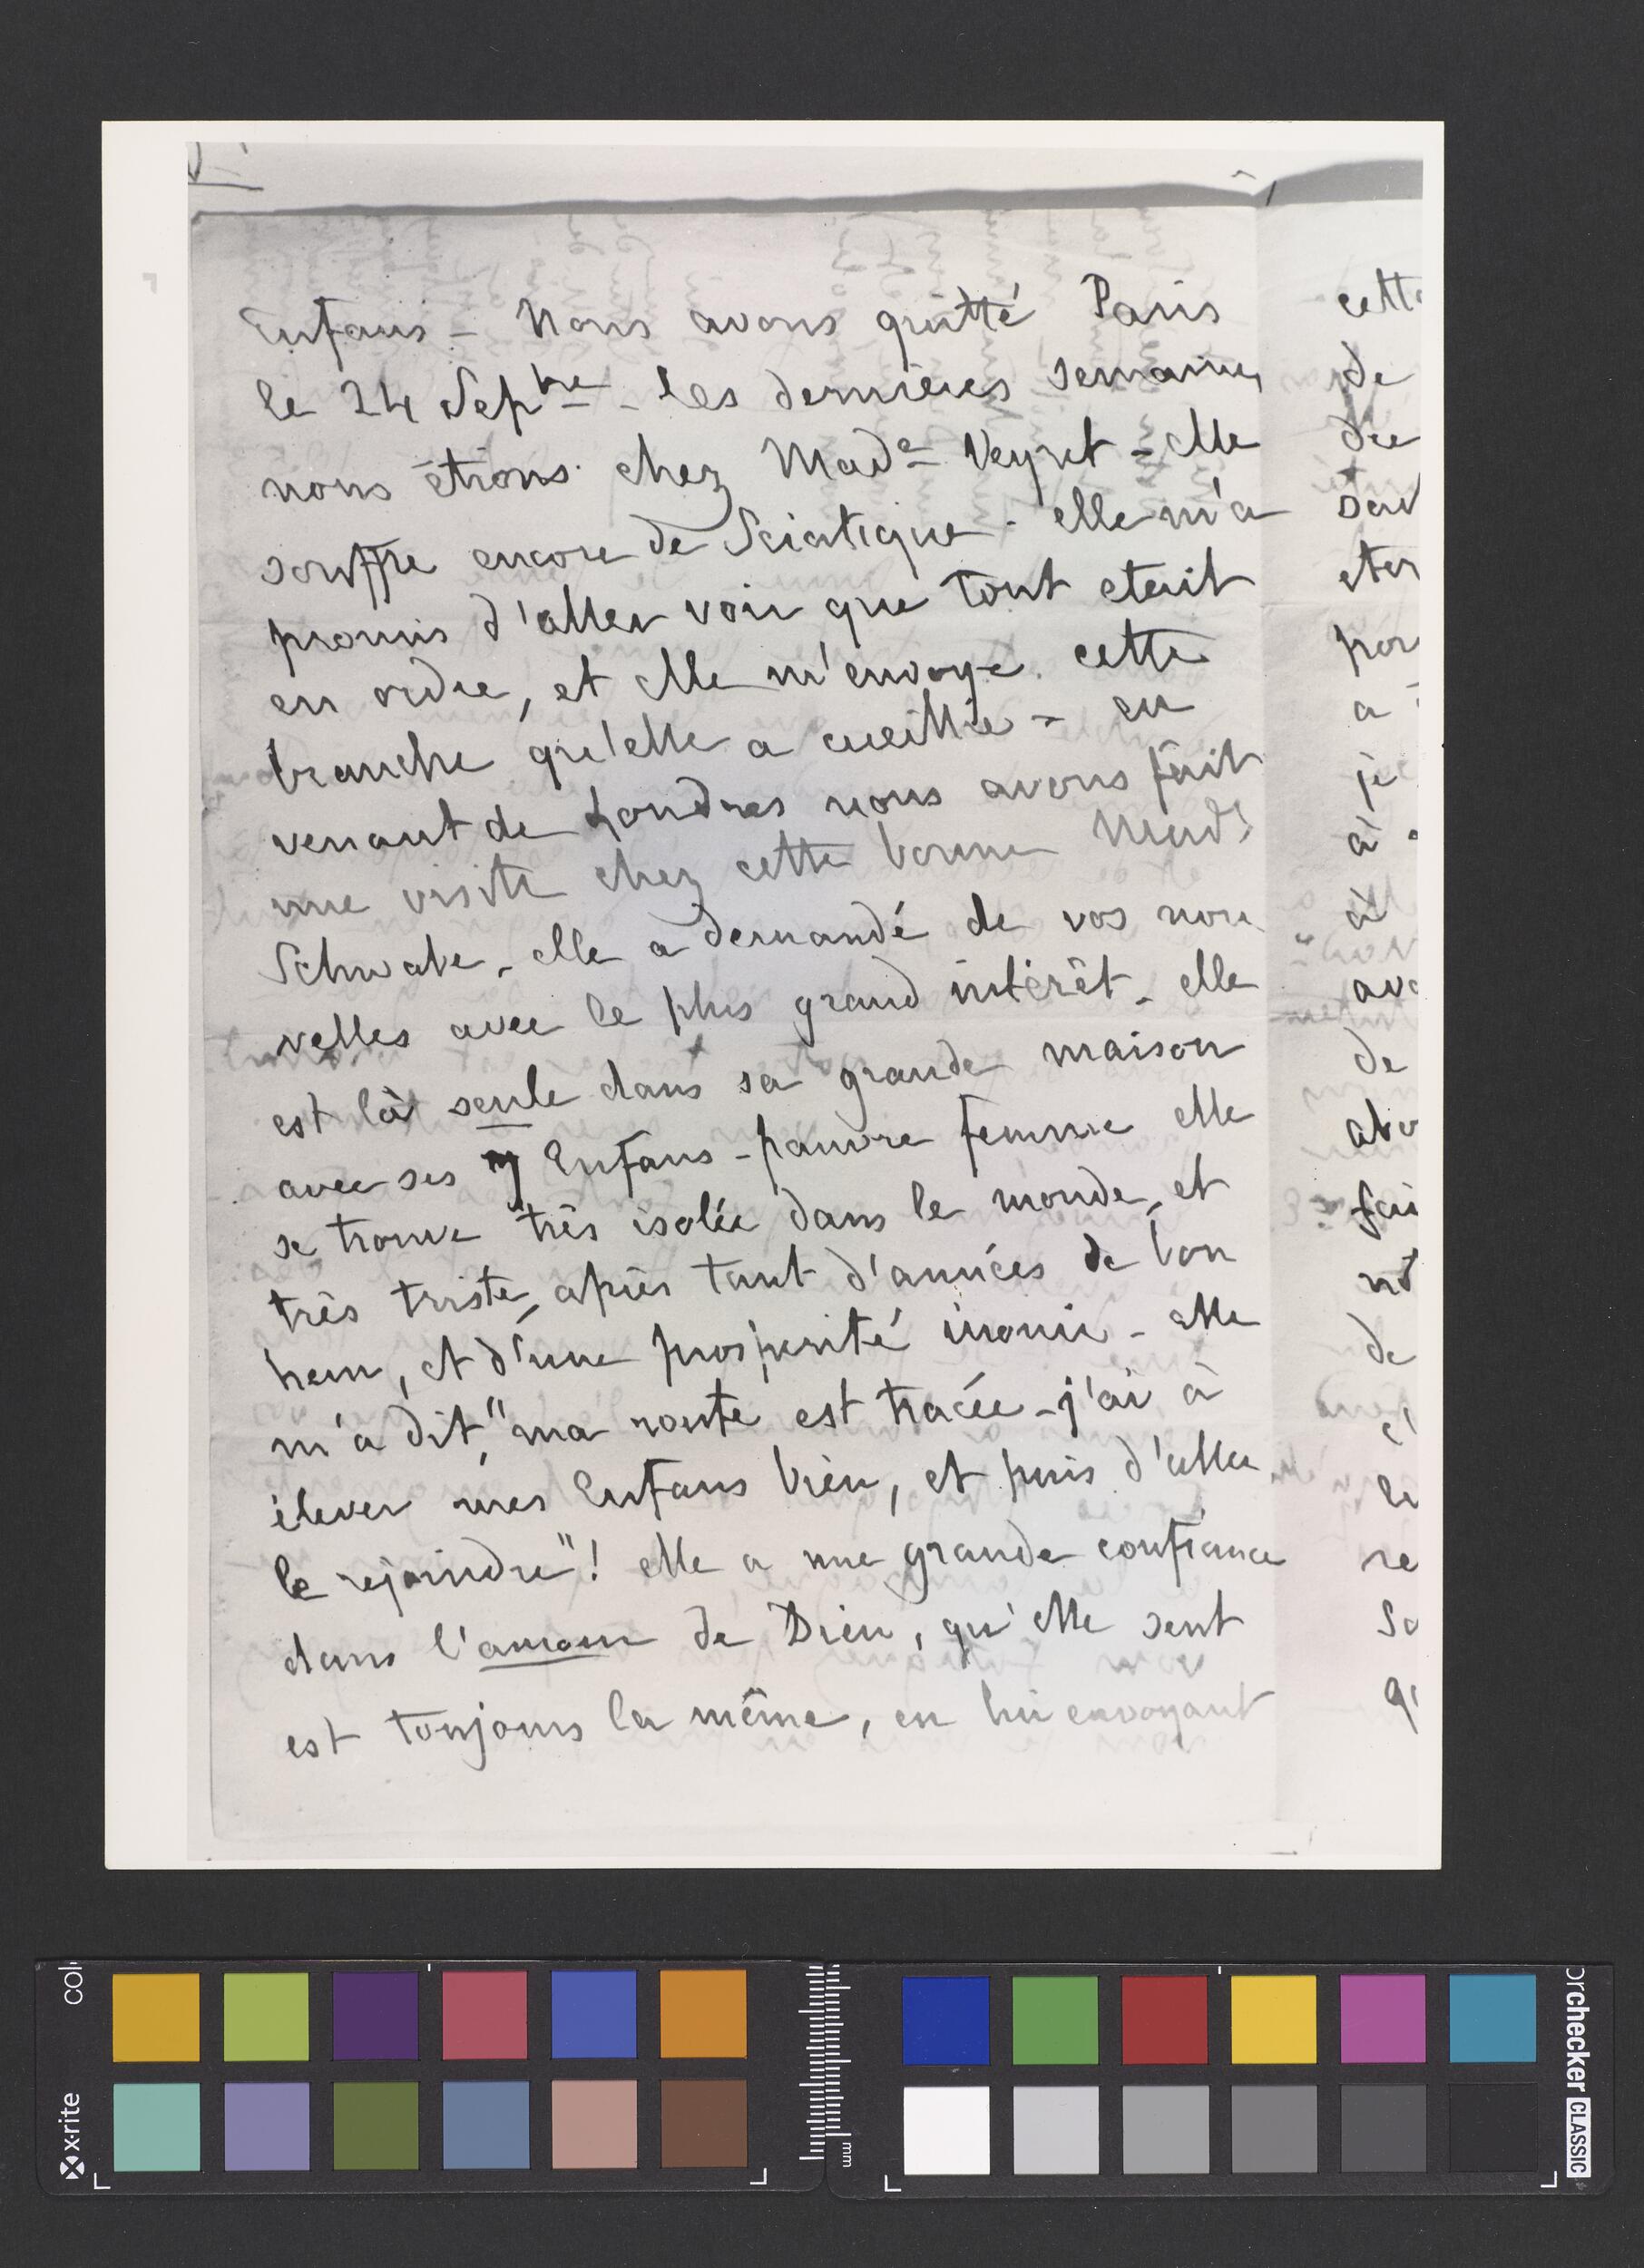 Enfans - Nous avons quitté Paris
le 24 Sepbre - les dernières semaines
nous étions chez Made Veyret - elle
souffre encore de Sciatique - elle m'a
promis d'aller voir que tout etait
en ordre, et elle m'envoye cette
branche qu'elle a cueillie - en
venant de Londres nous avons fait
une visite chez cette bonne Made
Schwabe - elle a demandé de vos nou
velles avec le plus grand intérêt - elle
est là seule dans sa grande maison
avec ses 7 Enfans - pauvre femme elle
se trouve très isolée dans le monde, et
très triste, après tant d'années de bon
heur, et d'une prosperité inouie - elle
m'a dit, "ma route est tracée - j'ai à
élever mes Enfans bien, et puis d'aller
le rejoindre"! elle a une grande confiance
dans l'amour de Dieu, qu'elle sent
est toujours la même, en lui envoyant
cette
de
sav
por
a
je
à
de
fai
de
re
x-rite
mm
checker CLASSIC